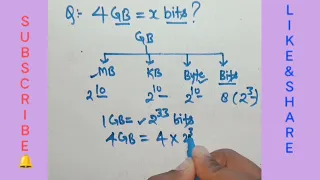 SUBSCRIBE🔔
Q:- 4 GB = x bits ?
GB
MB KB Byte Bits
2^10 2^10 2^10 8 (2^3)
1 GB = 2^33 bits
4 GB = 4 × 2^3
LIKE&SHARE